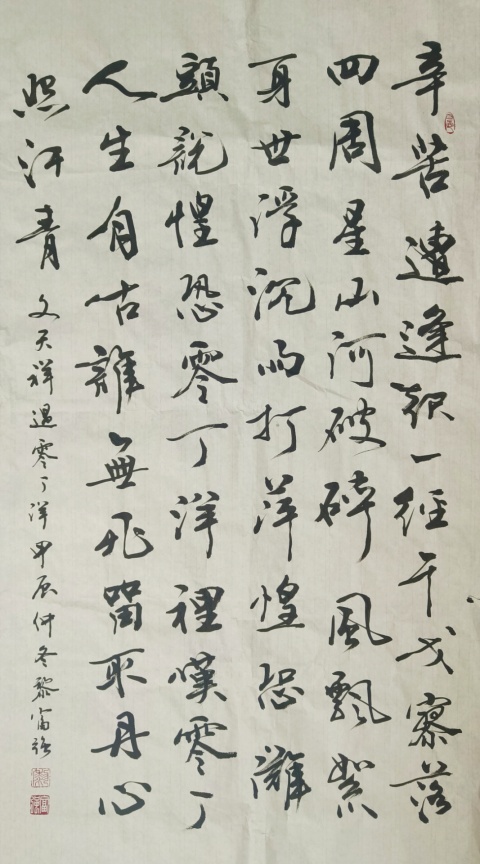 辛苦遭逢起一經干戈寥落
四周星山河破碎風飄絮
身世浮沉雨打萍惶恐灘
頭說惶恐零丁洋裡嘆零丁
人生自古誰無死留取丹心
照汗青
文天祥過零丁洋甲辰仲冬黎富強